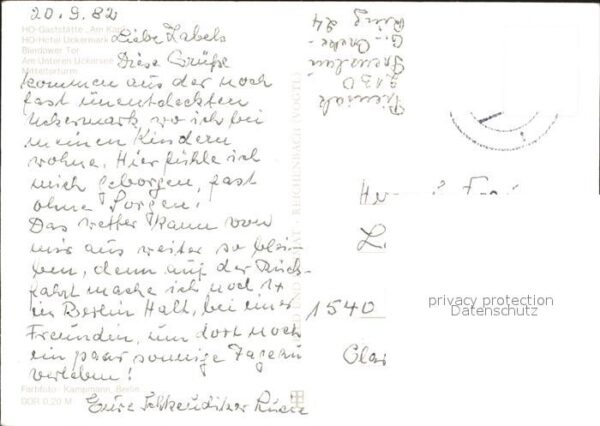 20.9.82
HO-Gaststätte "Am Kap
HO-Hotel Uckermark
Blindower Tor
Am Unteren Uckersee
Mitteltorturm
Liebe Zabels
Diese Grüße
kommen aus der noch
fast unentdeckten
Uckermark, wo ich bei
meinen Kindern
wohne. Hier fühle ich
mich geborgen, fast
ohne Sorgen!
Das Wetter kann von
mir aus weiter so blei-
ben, denn auf der Rück-
fahrt mache ich noch 1x
in Berlin Halt, bei einer
Freundin, um dort noch
ein paar sonnige Tage zu
verleben!
Eure Schkeuditzer
Farbfoto: Kampmann, Berlin
DDR 0,20 M
REICHENBACH (VOGTL)
2130
Prenzlau
Ring 24
L.
1540
privacy protection
Datenschutz